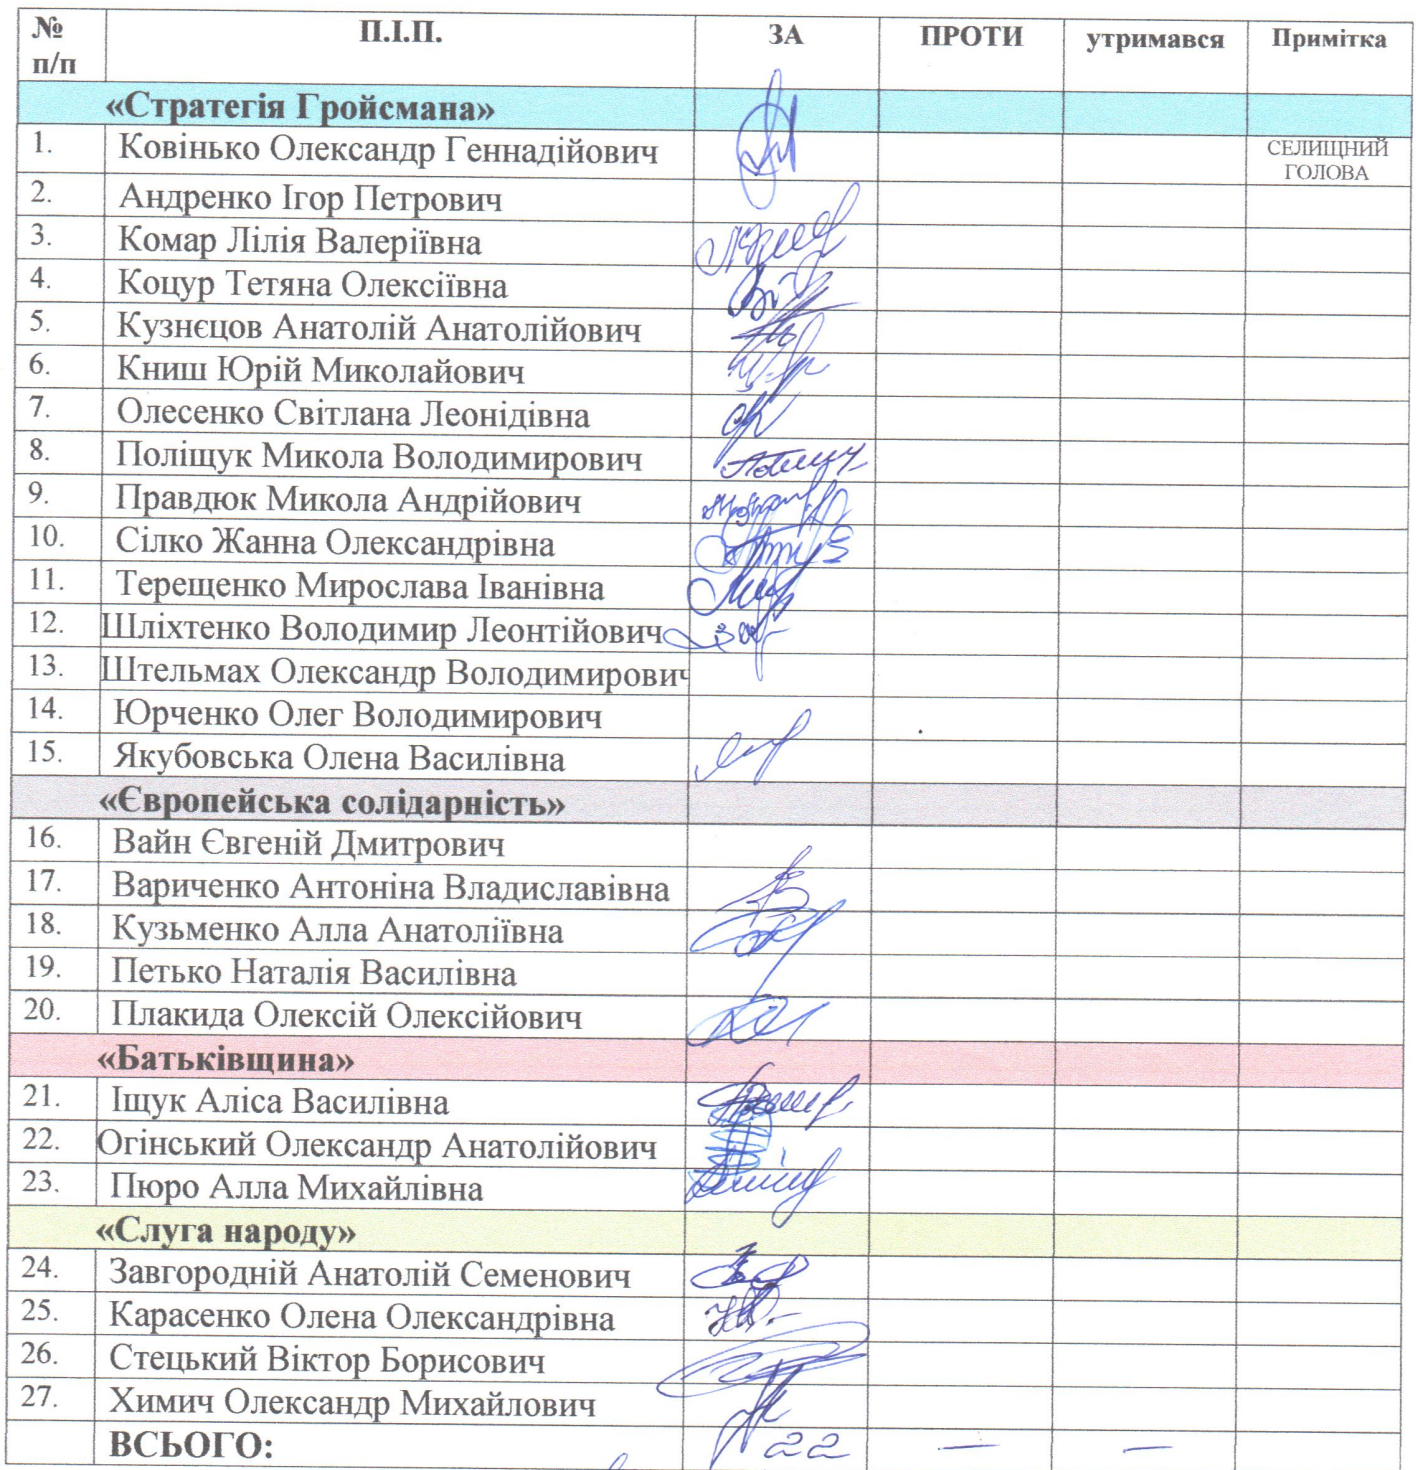 № п/п П.І.П. ЗА ПРОТИ утримався Примітка
«Стратегія Гройсмана»
1. Ковінько Олександр Геннадійович СЕЛИЩНИЙ ГОЛОВА
2. Андренко Ігор Петрович
3. Комар Лілія Валеріївна
4. Коцур Тетяна Олексіївна
5. Кузнєцов Анатолій Анатолійович
6. Книш Юрій Миколайович
7. Олесенко Світлана Леонідівна
8. Поліщук Микола Володимирович
9. Правдюк Микола Андрійович
10. Сілко Жанна Олександрівна
11. Терещенко Мирослава Іванівна
12. Шліхтенко Володимир Леонтійович
13. Штельмах Олександр Володимирович
14. Юрченко Олег Володимирович
15. Якубовська Олена Василівна
«Європейська солідарність»
16. Вайн Євгеній Дмитрович
17. Вариченко Антоніна Владиславівна
18. Кузьменко Алла Анатоліївна
19. Петько Наталія Василівна
20. Плакида Олексій Олексійович
«Батьківщина»
21. Іщук Аліса Василівна
22. Огінський Олександр Анатолійович
23. Пюро Алла Михайлівна
«Слуга народу»
24. Завгородній Анатолій Семенович
25. Карасенко Олена Олександрівна
26. Стецький Віктор Борисович
27. Химич Олександр Михайлович
ВСЬОГО: 22 — —